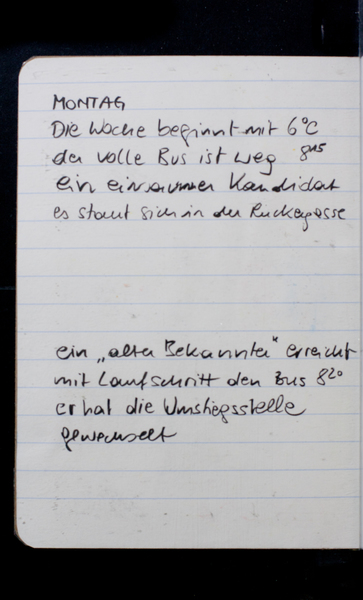 MONTAG
Die Woche beginnt mit 6°C
der volle Bus ist weg 8¹⁵
ein einsamer Kandidat
es staut sich in der Ruckergasse
ein „alter Bekannter" erreicht
mit Laufschritt den Bus 8²⁰
er hat die Umstiegsstelle
gewechselt